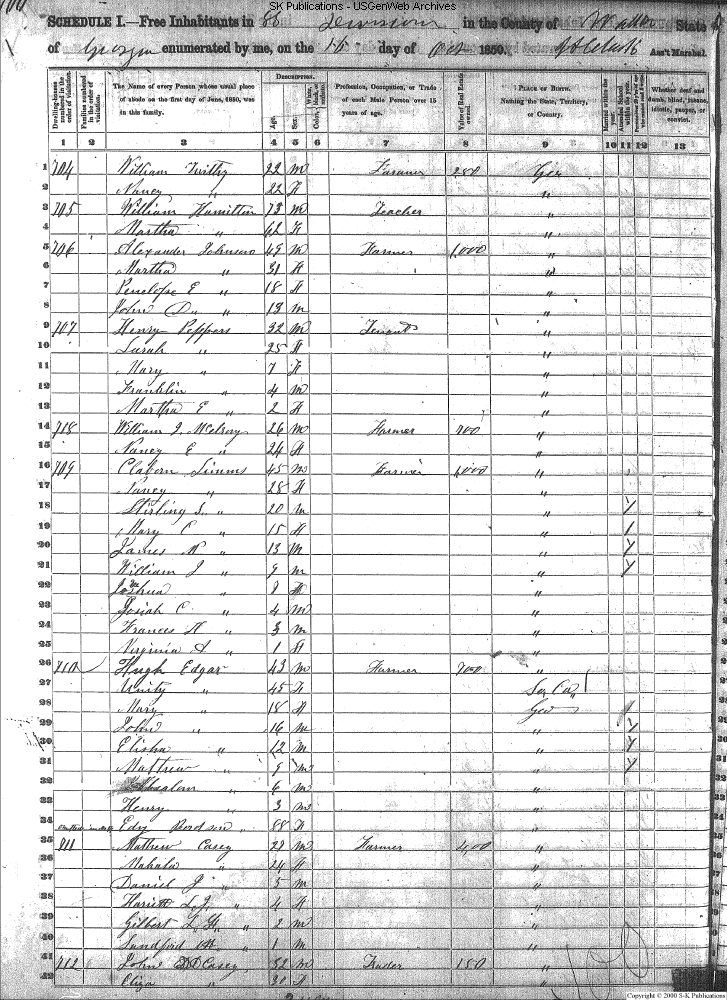 SK Publications - USGenWeb Archives
SCHEDULE I.—Free Inhabitants in 88 Division in the County of Walton State
of Georgia enumerated by me, on the 15 day of Oct 1850. Ass't Marshal.
Dwelling-houses numbered in the order of visitation. Families numbered in the order of visitation. The Name of every Person whose usual place of abode on the first day of June, 1850, was in this family. DESCRIPTION. Age. Sex. Color, White, black, or mulatto. Profession, Occupation, or Trade of each Male Person over 15 years of age. Value of Real Estate owned. PLACE OF BIRTH. Naming the State, Territory, or Country. Married within the year. Attended School within the year. Whether deaf and dumb, blind, insane, idiotic, pauper, or convict.
1 2 3 4 5 6 7 8 9 10 11 12 13
1 704 William 22 m Farmer 250 Geo
2 Nancy " 22 F "
3 705 William Hamilton 73 m Teacher "
4 Martha " 62 F "
5 706 Alexander Johnson 49 m Farmer 1,000 "
6 Martha " 31 F "
7 Penelope E " 18 F "
8 John D " 13 m "
9 707 Henry Peppers 32 m Tenant "
10 Sarah " 25 F "
11 Mary " 7 F "
12 Franklin " 4 m "
13 Martha E " 2 F "
14 718 William J. McElroy 26 m Farmer "
15 Nancy E " 24 F "
16 709 Claborn Simms 45 m Farmer 1,000 "
17 Nancy " 28 F "
18 Stirling S. " 20 m "
19 Mary C " 15 F " 1
20 James " 13 m "
21 William J " 9 m "
22 Joshua " F "
23 Josiah C. " 4 m "
24 Frances " 3 m "
25 Virginia A " 1 F "
26 710 Hugh Edgar 43 m Farmer 700 "
27 Unity " 45 F So. Ca.
28 Mary " 18 F Geo
29 John " 16 m "
30 Elisha " 12 m "
31 Matthew " 9 m "
32 Absalom " 6 m "
33 Henry " 3 m "
34 Edy 88 F "
35 711 Mathew Casey 29 m Farmer 400 "
36 Mahala " 24 F "
37 Daniel J " 5 m "
38 Hariett L. J. " 4 F "
39 Gilbert L. H. " 2 m "
40 Sandford " 1 m "
41 712 John Casey 52 m Trader 150 "
42 Eliza " 30 F "
Copyright © 2000 S-K Publications